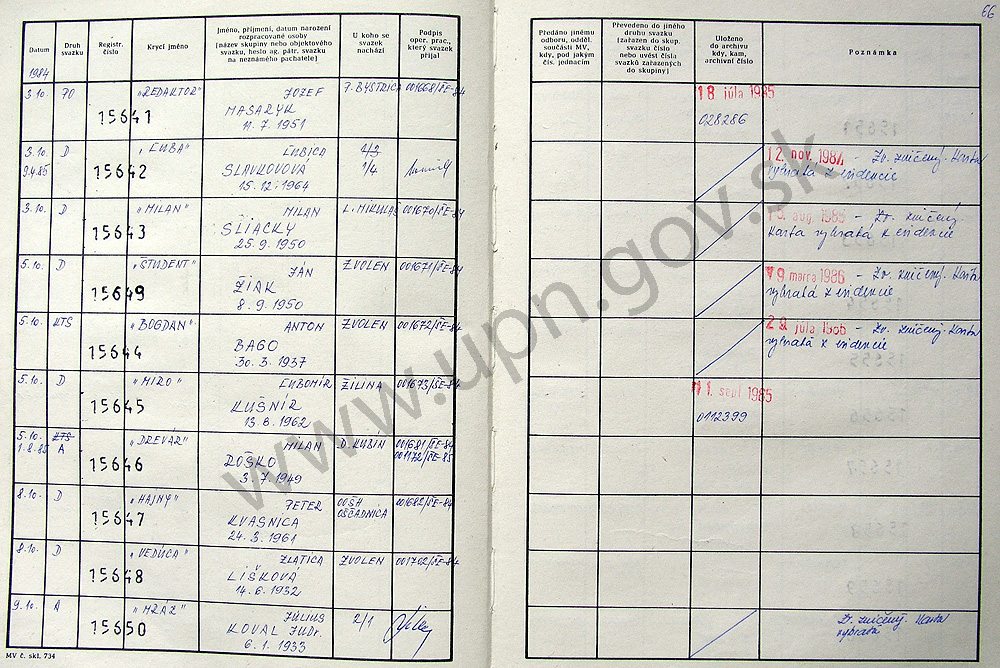 66
Datum
Druh svazku
Registr. číslo
Krycí jméno
Jméno, příjmení, datum narození
rozpracované osoby
[název skupiny nebo objektového
svazku, heslo ag. pátr. svazku
na neznámého pachatele]
U koho se
svazek
nachází
Podpis
oper. prac.,
který svazek
přijal
Předáno jinému
odboru, odděl.
součásti MV,
kdy, pod jakým
čís. jednacím
Převedeno do jiného
druhu svazku
[zařazen do skup.
svazku číslo
nebo uvést čísla
svazků zařazených
do skupiny]
Uloženo
do archivu
kdy, kam,
archivní číslo
Poznámka
1984
3.10. PO „REDAKTOR" JOZEF P. BYSTRICA 001668/ŠE-84 18 júla 1985
15641 MASARYK 028286
11.7.1951
3.10. D „ĽUBA" ĽUBICA 2/3 12. nov. 1987 - Zv. zničený. Karta
9.4.85 15642 SLAVKOVOVÁ 1/4 vybratá z evidencie
15.12.1964
3.10. D „MILAN" MILAN L. MIKULÁŠ 001670/ŠE-84 aug. 1985 - Zv. zničený.
15643 SLIACKY Karta vybratá z evidencie
25.9.1950
5.10. D „ŠTUDENT" JÁN ZVOLEN 001671/ŠE-84 9 marca 1986 - Zv. zničený. Karta
15649 ŽIAK vybratá z evidencie
8.9.1950
5.10. KTS „BOGDAN" ANTON ZVOLEN 001672/ŠE-84 júla 1986 - Zv. zničený. Karta
15644 BAGO vybratá z evidencie
30.3.1937
5.10. D „MIRO" ĽUBOMÍR ŽILINA 001673/ŠE-84 11. sept 1985
15645 KUŠNÍR 0112399
13.8.1962
5.10. KTS „DREVÁR" MILAN D. KUBÍN 001681/ŠE-84
1.8.85 A 15646 ROŠKO 001172/ŠE-85
3.7.1949
8.10. D „HÁJNY" PETER OOŠH 001682/ŠE-84
15647 KVASNICA OŠČADNICA
24.3.1961
8.10. D „VEDÚCA" ZLATICA ZVOLEN 001702/ŠE-84
15648 LIŠKOVÁ
14.6.1932
9.10. A „MRÁZ" JÚLIUS 2/1 Zv. zničený. Karta
15650 KOVAL JUDr. vybratá
6.1.1933
MV č. skl. 734
www.upn.gov.sk